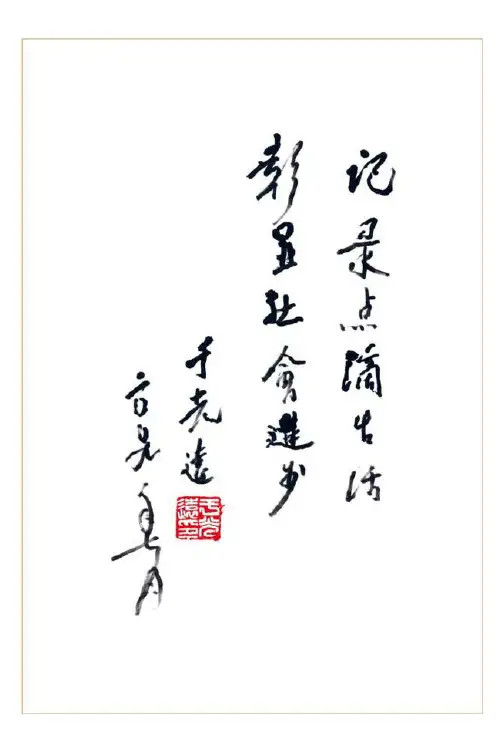 记录点滴生活
彰显社會進步
于光遠
年七月